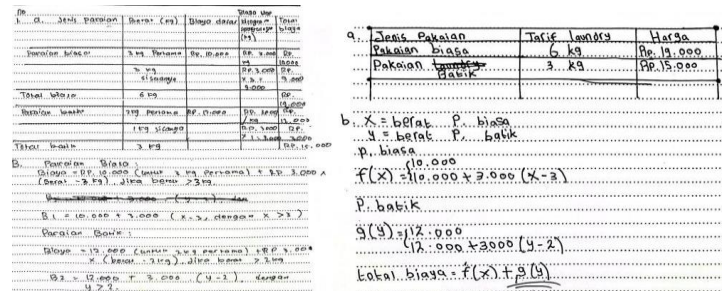 No
1. a. Jenis pakaian Berat (kg) Biaya dasar Total biaya
Pakaian biasa 3 kg Pertama Rp. 10.000 Rp. 10.000
3 kg sisanya Rp. 3.000 x 3 = 9.000 Rp. 9.000
Total biasa 6 kg Rp. 19.000
Pakaian batik 2 kg pertama Rp. 12.000 Rp. 12.000
1 kg sisanya Rp. 3000 x 1 = 3.000 Rp. 3.000
Total batik 3 kg Rp. 15.000
B. Pakaian Biasa :
Biaya = RP. 10.000 (untuk 3 kg pertama) + RP 3.000 x
(berat - 3 kg). Jika berat > 3 kg.
B 1 = 10.000 + 3.000 (x - 3, dengan x > 3)
Pakaian Batik :
Biaya = 12.000 (untuk 2 kg pertama) + RP 3.000
x (berat - 2 kg). Jika berat > 2 kg
B2 = 12.000 + 3.000 (y - 2), dengan
y > 2.
a. Jenis Pakaian Tarif laundry Harga
Pakaian biasa 6 kg Rp. 19.000
Pakaian Batik 3 kg Rp. 15.000
b. X = berat P. biasa
y = berat P. batik
P. biasa
f(x) = {10.000
10.000 + 3.000 (x-3)
P. batik
g(y) = {12.000
12.000 + 3000 (y-2)
total biaya = f(x) + g(y)